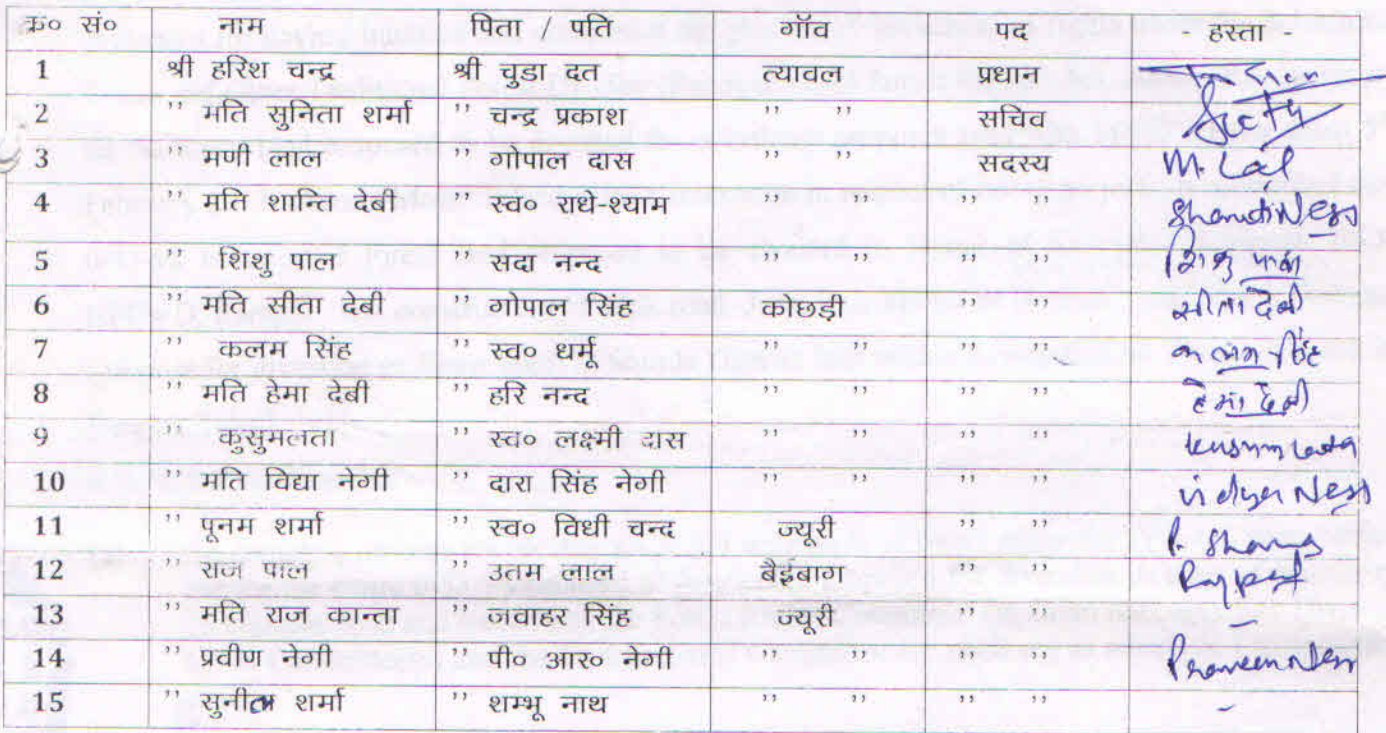 क्र० सं० नाम पिता / पति गॉव पद - हस्ता -
1 श्री हरिश चन्द्र श्री चुडा दत त्यावल प्रधान
2 '' मति सुनिता शर्मा '' चन्द्र प्रकाश '' '' सचिव
3 '' मणी लाल '' गोपाल दास '' '' सदस्य M. Lal
4 '' मति शान्ति देबी '' स्व० राधे-श्याम '' '' '' '' Shanti Negi
5 '' शिशु पाल '' सदा नन्द '' '' '' '' शिशु पाल
6 '' मति सीता देबी '' गोपाल सिंह कोछड़ी '' '' सीता देवी
7 '' कलम सिंह '' स्व० धर्मू '' '' '' '' कलम सिंह
8 '' मति हेमा देबी '' हरि नन्द '' '' '' '' हेमा देवी
9 '' कुसुमलता '' स्व० लक्ष्मी दास '' '' '' '' kusum Lata
10 '' मति विद्या नेगी '' दारा सिंह नेगी '' '' '' '' vidya Negi
11 '' पूनम शर्मा '' स्व० विधी चन्द ज्यूरी '' '' P. Sharma
12 '' राज पाल '' उतम लाल बैईबाग '' '' Rajpal
13 '' मति राज कान्ता '' जवाहर सिंह ज्यूरी '' '' -
14 '' प्रवीण नेगी '' पी० आर० नेगी '' '' '' '' Praveen Negi
15 '' सुनीता शर्मा '' शम्भू नाथ '' '' '' '' -